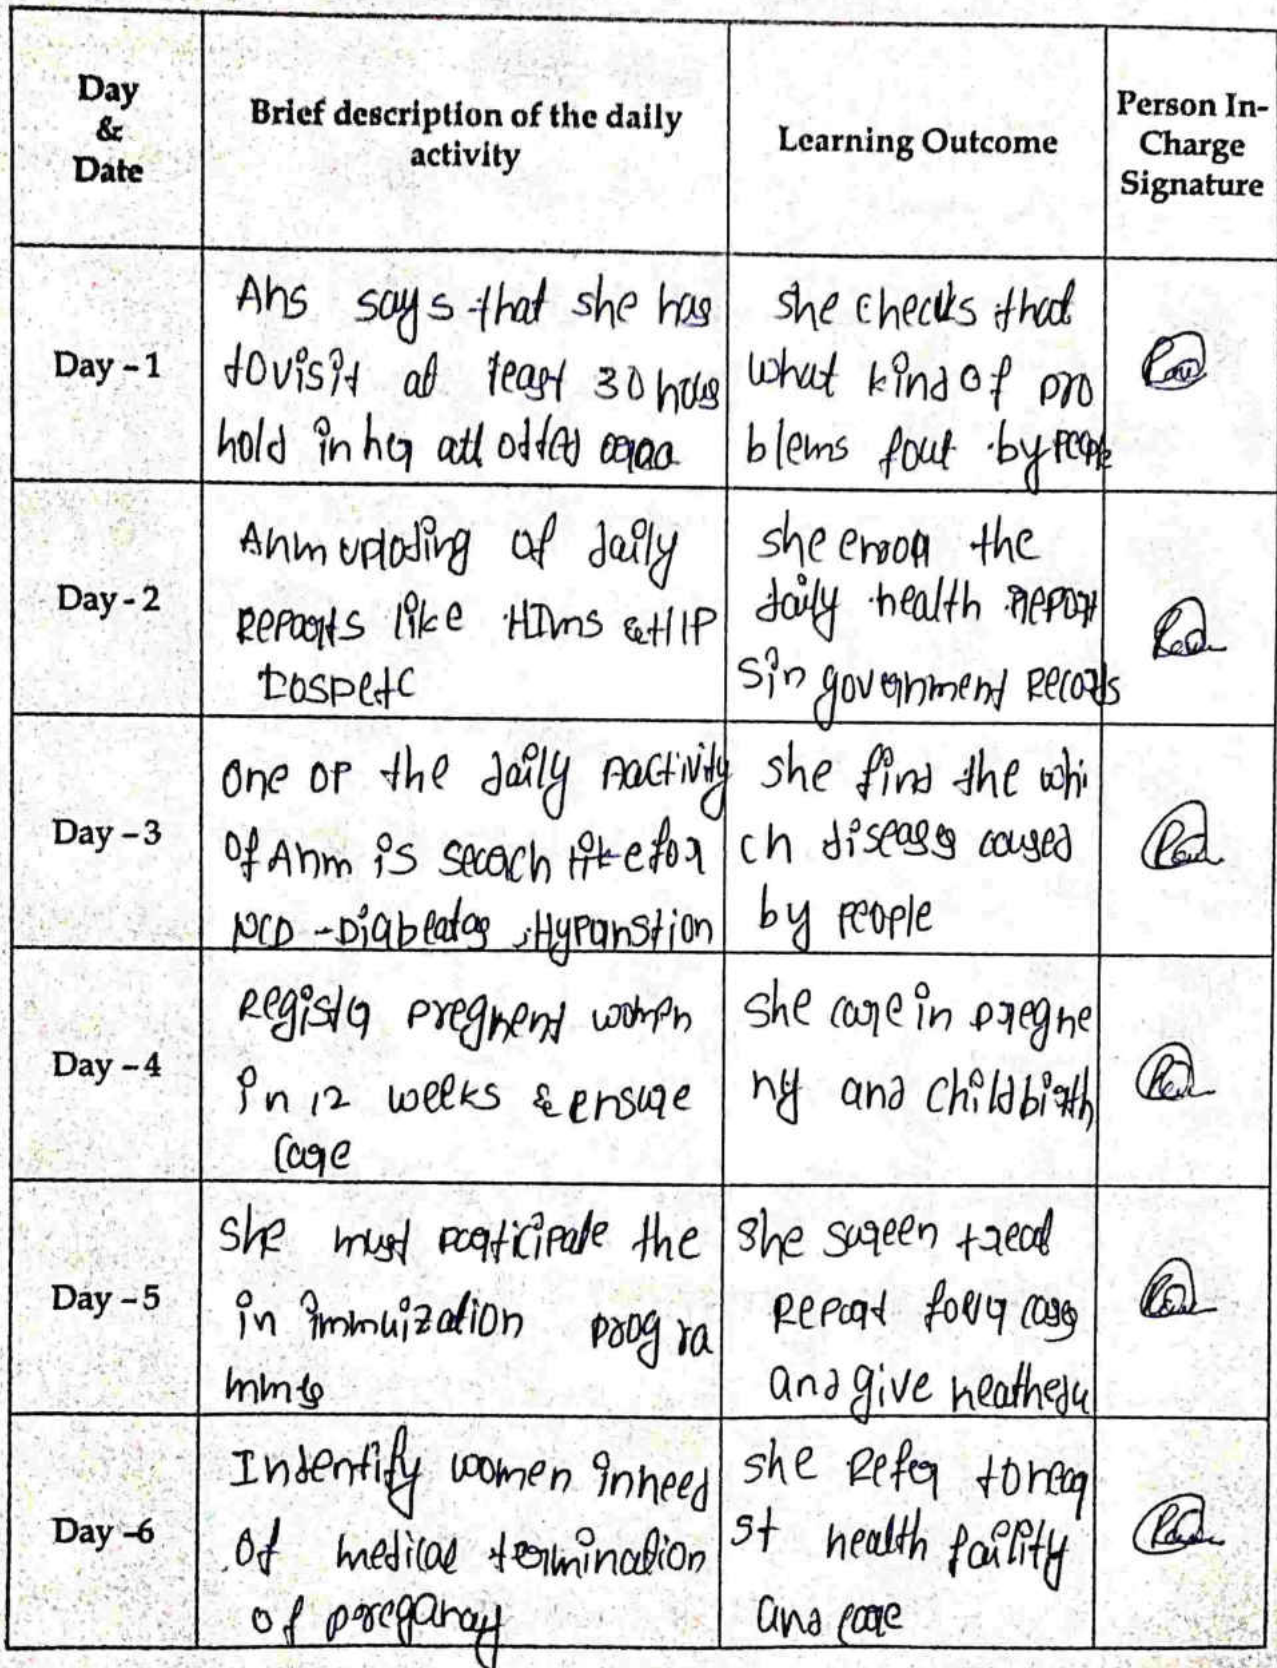 Day
&
Date
Brief description of the daily
activity
Learning Outcome
Person In-
Charge
Signature
Day - 1
Ans says that she has
to visit at least 30 hous
hold in her all otted
she checks that
what kind of pro
blems fout by people
Day - 2
Anm uploding of daily
Reports like HIms
she the
daily health report
s in government Records
Day - 3
one of the daily Aactivity
of Anm is like for
NCD - Diabeates , Hypanstion
she find the whi
ch diseases caused
by people
Day - 4
Register pregnent women
in 12 weeks & ensure
care
she care in pregne
ny and childbirth
Day - 5
she must participate the
in immuization progra
mmes
she screen treat
Report cases
and give
Day - 6
Indentify women in need
of medical termination
of
she Refer to near
st health faility
and care